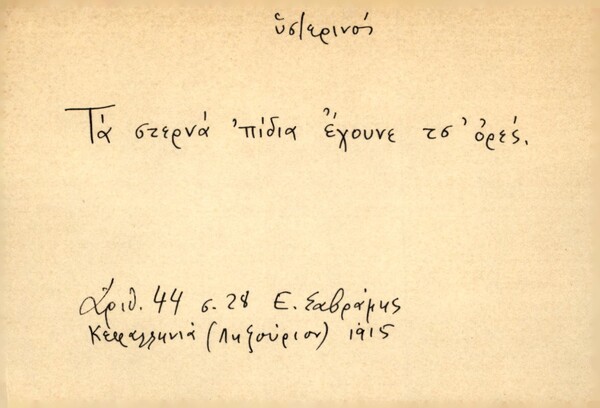 ὑστερινός
Τά στερνά ᾿πίδια ἔχουνε τσ᾿ ὀρές.
Ἀριθ. 44 σ. 28 Ε. Σαβράμης
Κεφαλληνιά (Ληξούριον) 1915